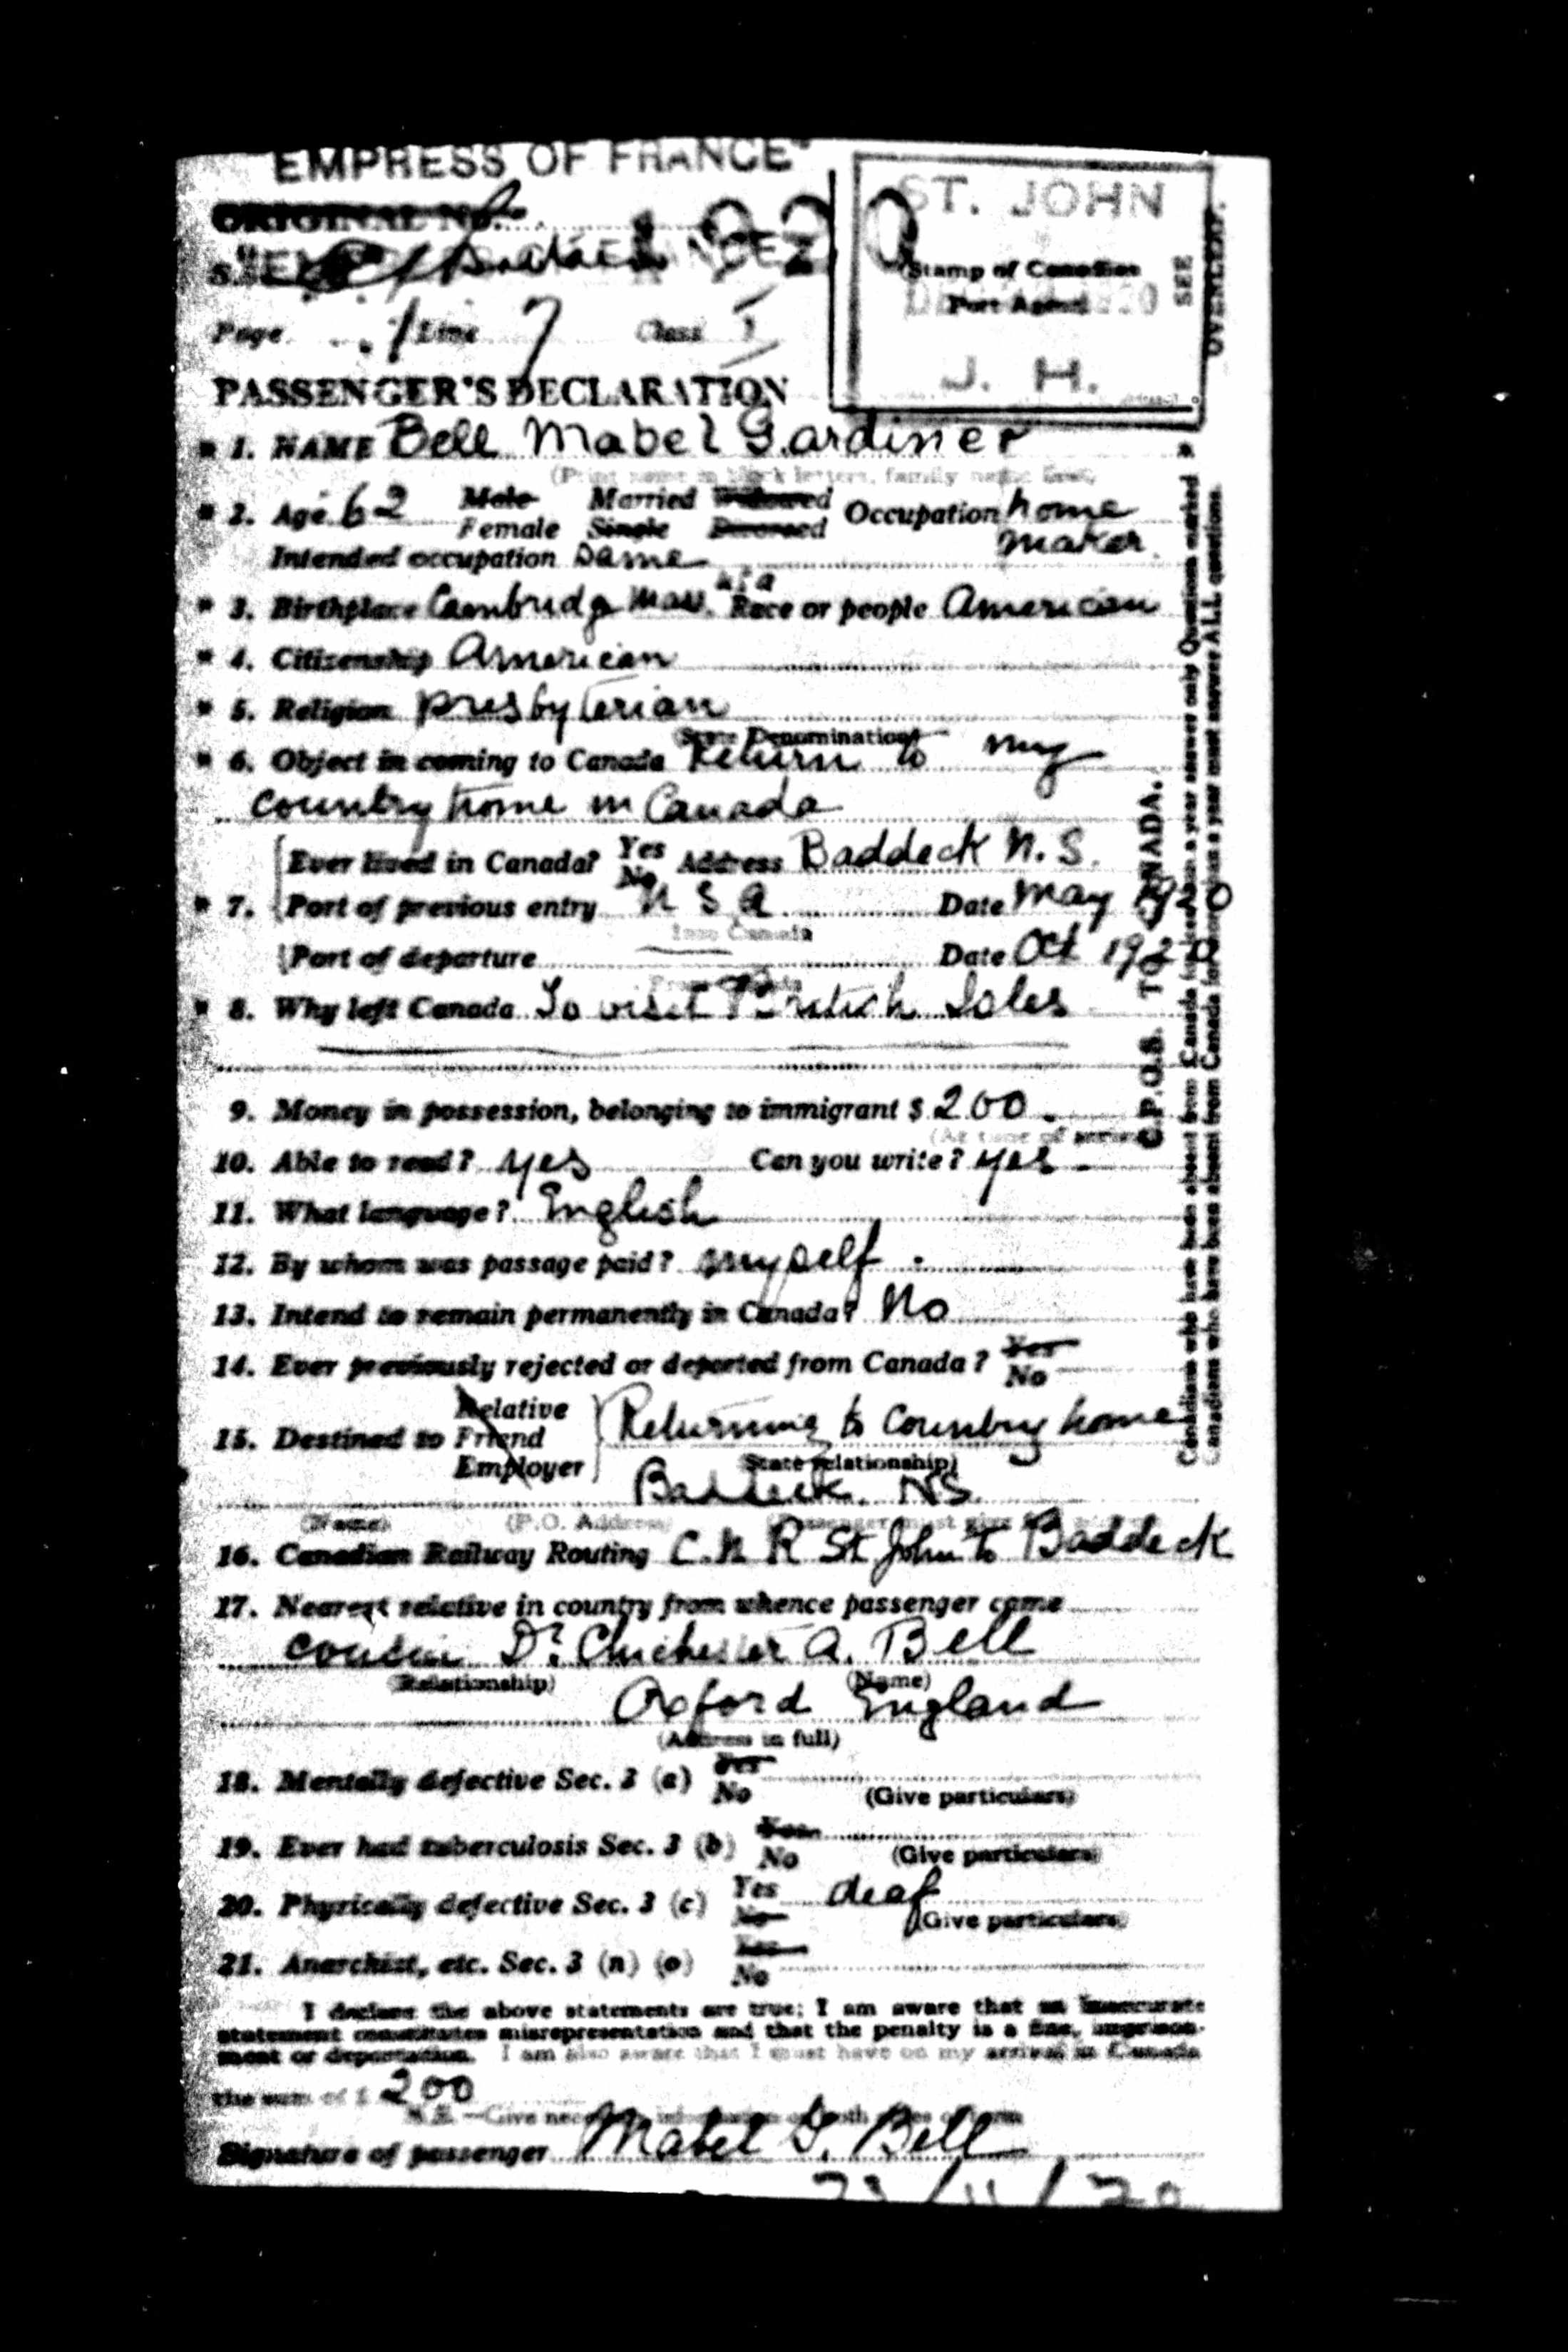 EMPRESS OF FRANCE"
ORIGINAL No.
1920
ST. JOHN
Stamp of Canadian
Port Agent
J. H.
SEE OVERLEAF.
Page 1 Line 7 Class I
PASSENGER'S DECLARATION
1. NAME Bell Mabel Gardiner
(Print name in block letters, family name first)
2. Age 62 Male Female Married Single Widowed Divorced Occupation home maker
Intended occupation Same
3. Birthplace Cambridge Mass. Race or people American
4. Citizenship American
5. Religion presbyterian
(State Denomination)
6. Object in coming to Canada Return to my
country home in Canada
Ever lived in Canada? Yes No Address Baddeck N.S.
7. Port of previous entry U S A Date May 1920
Into Canada
Port of departure Date Oct 1920
8. Why left Canada To visit British Isles
C.P.O.S. TO CANADA.
9. Money in possession, belonging to immigrant $ 200.
(At time of arrival)
10. Able to read? yes Can you write? yes
11. What language? English
12. By whom was passage paid? myself.
13. Intend to remain permanently in Canada? No
14. Ever previously rejected or deported from Canada? Yes No
15. Destined to Relative Friend Employer Returning to Country home
(State relationship)
Baddeck. NS.
(Name) (P.O. Address)
16. Canadian Railway Routing C.N R St John to Baddeck
17. Nearest relative in country from whence passenger came
cousin Dr. Chichester A. Bell
(Relationship) (Name)
Oxford England
(Address in full)
18. Mentally defective Sec. 3 (a) Yes No
(Give particulars)
19. Ever had tuberculosis Sec. 3 (b) Yes No
(Give particulars)
20. Physically defective Sec. 3 (c) Yes No deaf
(Give particulars)
21. Anarchist, etc. Sec. 3 (n) (o) Yes No
I declare the above statements are true; I am aware that an inaccurate
statement constitutes misrepresentation and that the penalty is a fine, imprison-
ment or deportation. I am also aware that I must have on my arrival in Canada
the sum of $ 200
N.B.—Give necessary information on both sides of form
Signature of passenger Mabel G. Bell
23/11/20